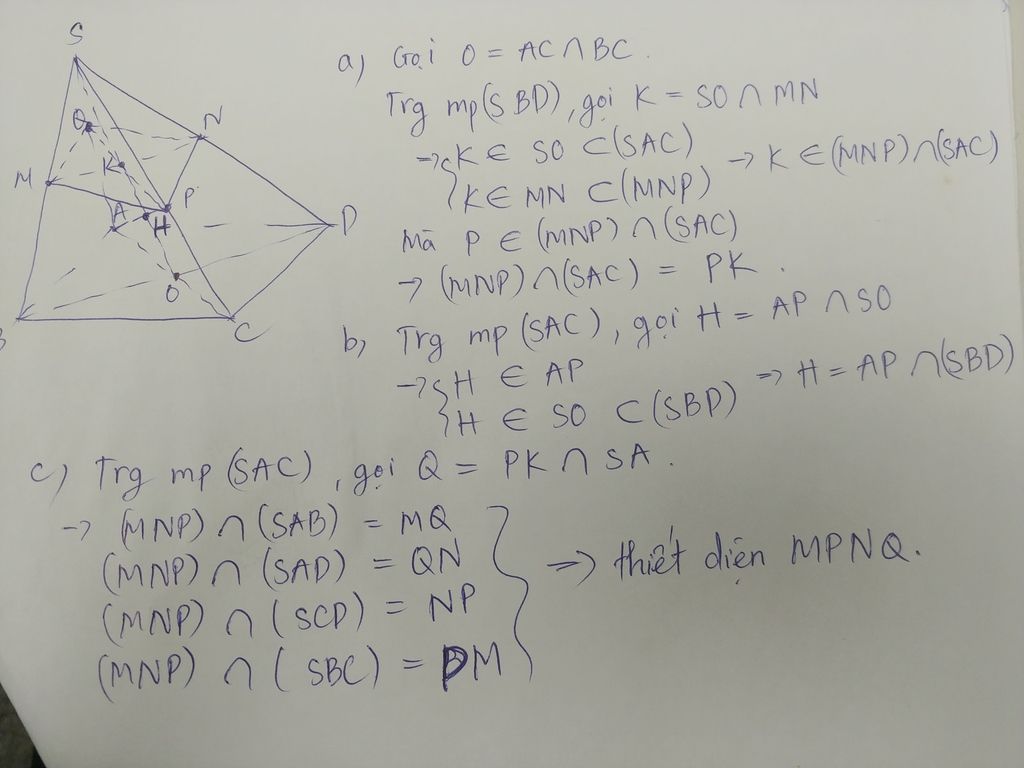 S
Q
N
K
M
A
H
P
D
O
B
C
a) Gọi O = AC ∩ BC.
Trg mp(SBD), gọi K = SO ∩ MN
→ { K ∈ SO ⊂ (SAC)
{ K ∈ MN ⊂ (MNP) → K ∈ (MNP) ∩ (SAC)
Mà P ∈ (MNP) ∩ (SAC)
→ (MNP) ∩ (SAC) = PK.
b) Trg mp (SAC), gọi H = AP ∩ SO
→ { H ∈ AP
{ H ∈ SO ⊂ (SBD) → H = AP ∩ (SBD)
c) Trg mp (SAC), gọi Q = PK ∩ SA.
→ (MNP) ∩ (SAB) = MQ
(MNP) ∩ (SAD) = QN
(MNP) ∩ (SCD) = NP
(MNP) ∩ (SBC) = PM
} => thiết diện MPNQ.